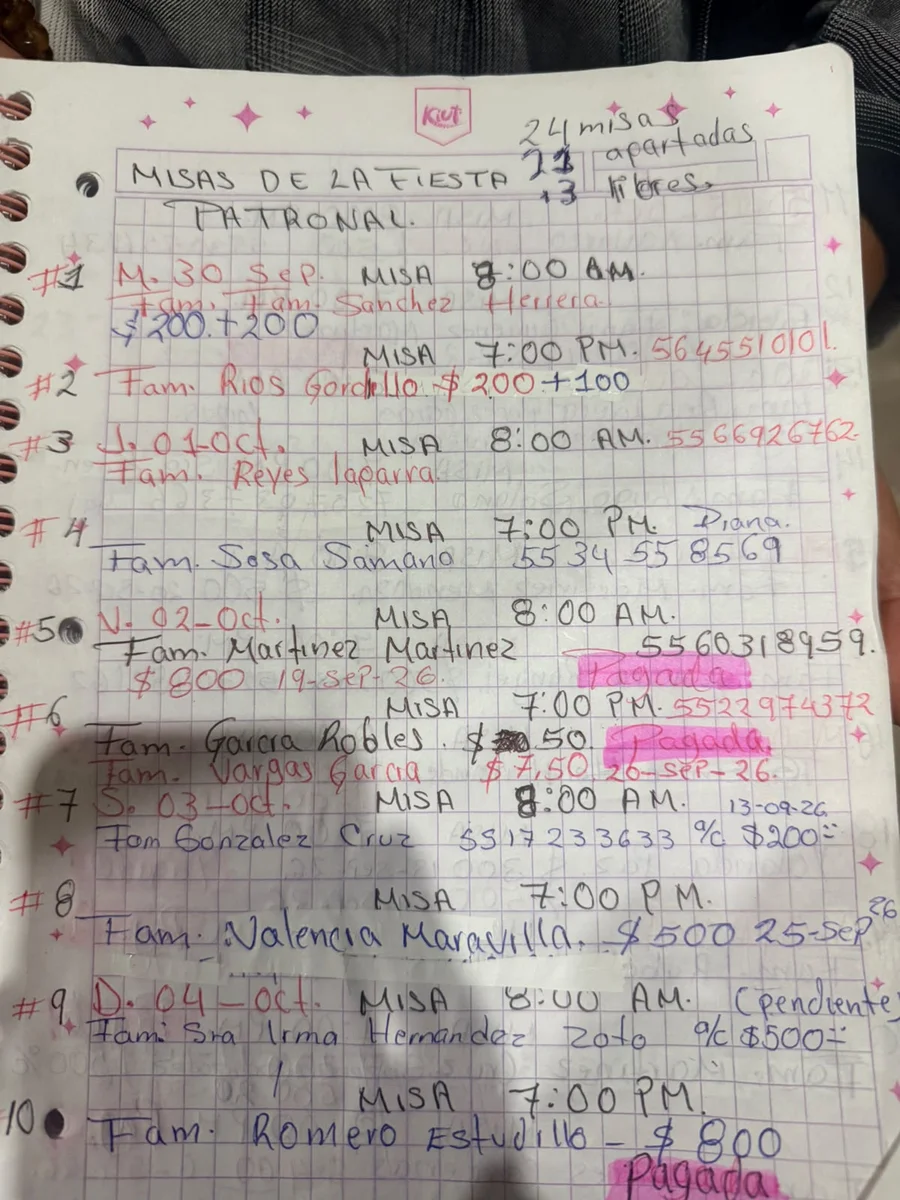 Kiut
24 misas
21 apartadas
+3 libres.
MISAS DE LA FIESTA
PATRONAL.
#1 M. 30 Sep. MISA 8:00 AM.
Fam. Fam. Sanchez Herrera.
$200.+200
MISA 7:00 PM. 5645510101.
#2 Fam. Rios Gordillo $200+100
#3 J. 01-Oct. MISA 8:00 AM. 5566926762.
Fam. Reyes Iaparra.
#4 MISA 7:00 PM. Diana.
Fam. Sosa Samano 55 34 55 8569
#5 V. 02-Oct. MISA 8:00 AM.
Fam. Martinez Martinez 5560318959.
$800 19-Sep-26. Pagada
#6 MISA 7:00 PM. 5522974372
Fam. Garcia Robles. $ 50. Pagada.
Fam. Vargas Garcia $7,50 26-Sep-26.
#7 S. 03-Oct. MISA 8:00 AM. 13-09-26
Fam Gonzalez Cruz 5517233633 a/c $200=
#8 MISA 7:00 PM.
Fam. Valencia Maravilla. $500 25-Sep 26
#9 D. 04-Oct. MISA 8:00 AM. (pendiente)
Fam: Sra Irma Hernandez Zoto a/c $500=
MISA 7:00 PM.
10 Fam. Romero Estudillo - $800
Pagada